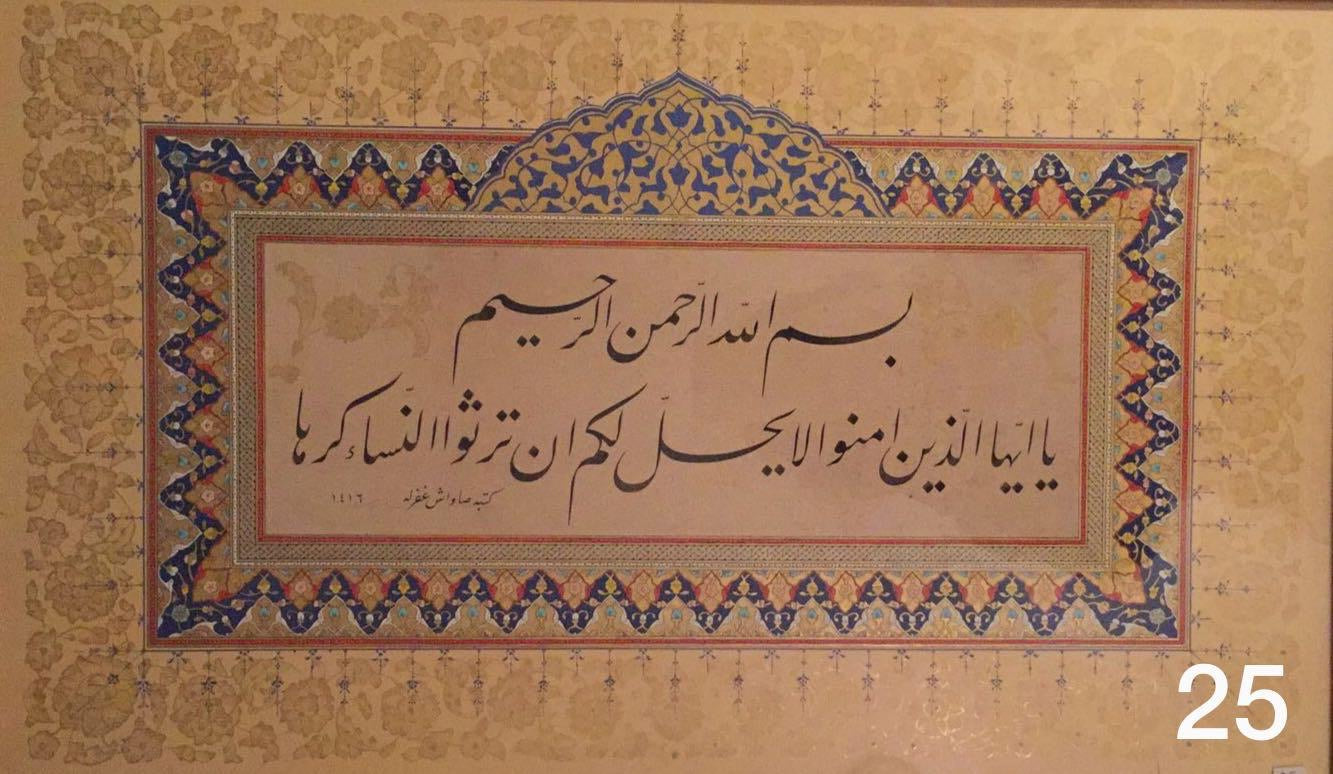 بسم الله الرّحمن الرّحيم
يا ايّها الّذين امنوا لا يحلّ لكم ان ترثوا النّساء كرها
كتبه صاواش غفرله ١٤١٦
25